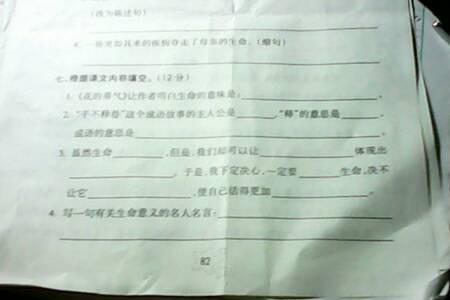 (改为陈述句)
4. 一场突如其来的疾病夺走了母亲的生命。(缩句)
七、根据课文内容填空。(12分)
1. 《花的勇气》让作者明白生命的意味是:____。
2. “手不释卷”这个成语故事的主人公是____,“释”的意思是____,
成语的意思是____。
3. 虽然生命____,但是,我们却可以让____体现出
____。于是,我下定决心,一定要____生命,决不
让它____,使自己活得更加____。
4. 写一句有关生命意义的名人名言:____
82